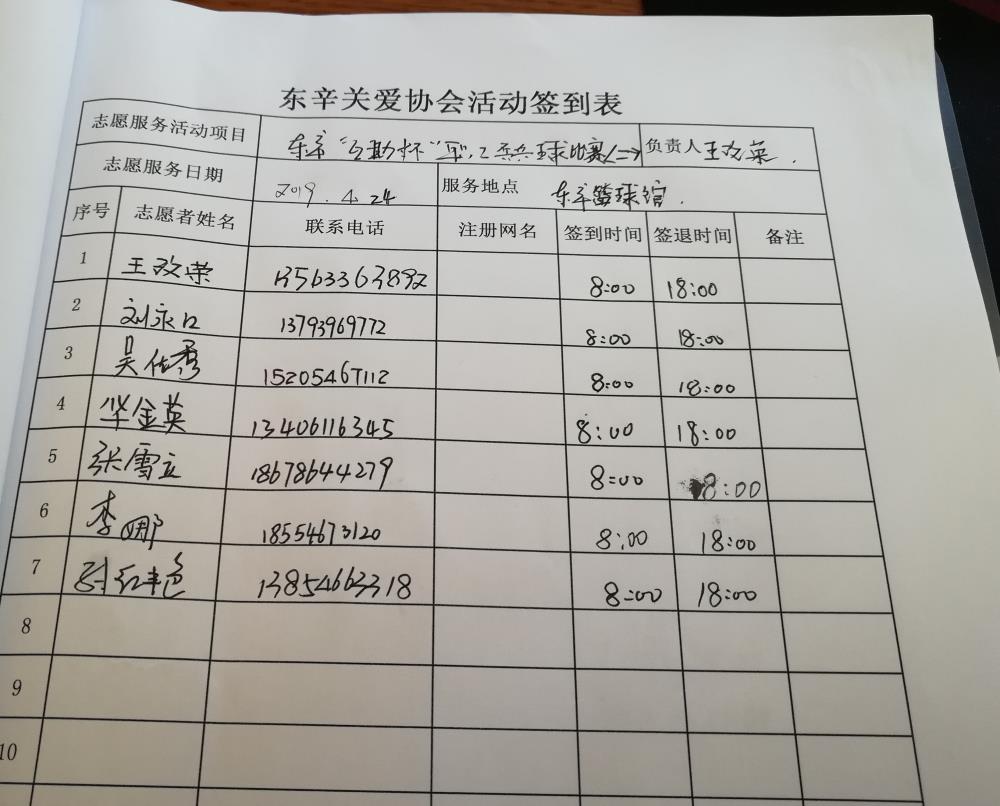 东辛关爱协会活动签到表
志愿服务活动项目 东辛“互助杯” 乒乓球比赛 负责人 王改荣.
志愿服务日期 2019.4.24 服务地点 东辛篮球馆.
序号 志愿者姓名 联系电话 注册网名 签到时间 签退时间 备注
1 王改荣 13563363892 8:00 18:00
2 刘永 13793969772 8:00 18:00
3 吴佐秀 15205467112 8:00 18:00
4 毕金英 13406116345 8:00 18:00
5 张雪立 18678644279 8:00 18:00
6 李娜 18554673120 8:00 18:00
7 红艳 13854663318 8:00 18:00
8
9
10